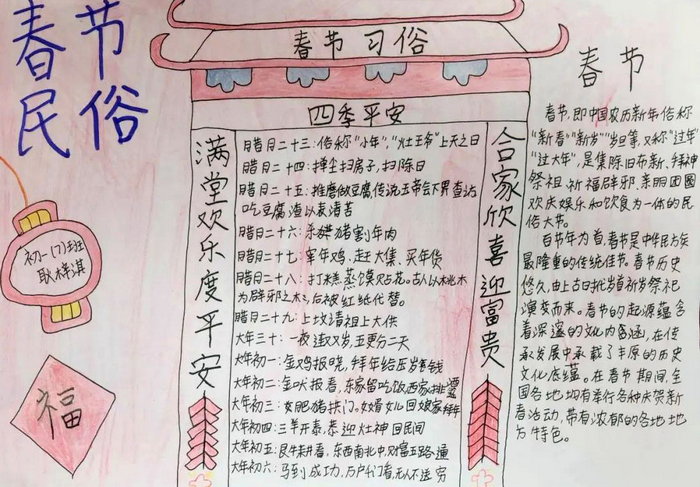 春节
民俗
春节习俗
四季平安
满堂欢乐度平安
合家欣喜迎富贵
初一(7)班
福
腊月二十三:俗称"小年","灶王爷"上天之日
腊月二十四:掸尘扫房子,扫除日
腊月二十五:推磨做豆腐,传说玉帝会下界查访
吃豆腐渣以表清苦
腊月二十六:杀猪割年肉
腊月二十七:宰年鸡、赶大集、买年货
腊月二十八:打糕蒸馍贴花。古人以桃木
为辟邪之木,后被红纸代替。
腊月二十九:上坟请祖上大供
大年三十:一夜连双岁,五更分二天
大年初一:金鸡报晓,拜年给压岁钱
大年初二:金吠报春,东家留吃饭西家
大年初三:肥猪拱门。女婿女儿回娘家拜年
大年初四:三羊开泰,恭迎灶神回民间
大年初五:艮牛耕春,东西南北中,财富五路通
大年初六:马到成功,万户门看,无人不送穷
春节
春节,即中国农历新年,俗称
"新春""新岁""岁旦等,又称"过年"
"过大年",是集除旧布新、拜神
祭祖、祈福辟邪、亲朋团圆
欢庆娱乐和饮食为一体的民
俗大节。
百节年为首,春节是中华民族
最隆重的传统佳节。春节历史
悠久,由上古时代岁首祈岁祭祀
演变而来。春节的起源蕴含
着深邃的文化内涵,在传
承发展中承载了丰厚的历史
文化底蕴。在春节期间,全
国各地均有举行各种庆贺新
春活动,带有浓郁的各地地
方特色。